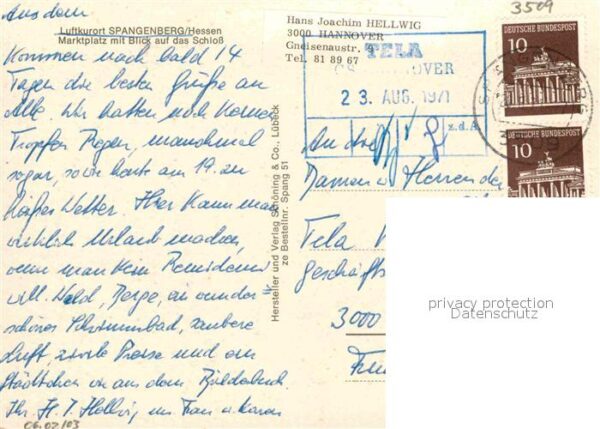 3509
Aus dem
Luftkurort SPANGENBERG/Hessen
Marktplatz mit Blick auf das Schloß
kommen nach bald 14
Tagen die besten Grüße an
Alle. Wir hatten noch keinen
Tropfen Regen, manchmal
sogar, so wie heute am 19. zu
heißes Wetter. Hier kann man
wirklich Urlaub machen,
wenn man kein Remidemi
will. Wald, Berge, ein wunder-
schönes Schwimmbad, saubere
Luft, zivile Preise und ein
Städtchen wie aus dem Bilderbuch.
Ihr H. J. Hellwig, Frau u. Karin
06.02/03
Hersteller und Verlag Schöning & Co., Lübeck
ze Bestellnr. Spang 51
Hans Joachim HELLWIG
3000 HANNOVER
Gneisenaustr. 9
Tel. 81 89 67
TELA
HANNOVER
23. AUG. 1971
z.d.A.
An die
Damen u. Herren der
Tela
Geschäfts
3000
DEUTSCHE BUNDESPOST
10
DEUTSCHE BUNDESPOST
10
privacy protection
Datenschutz